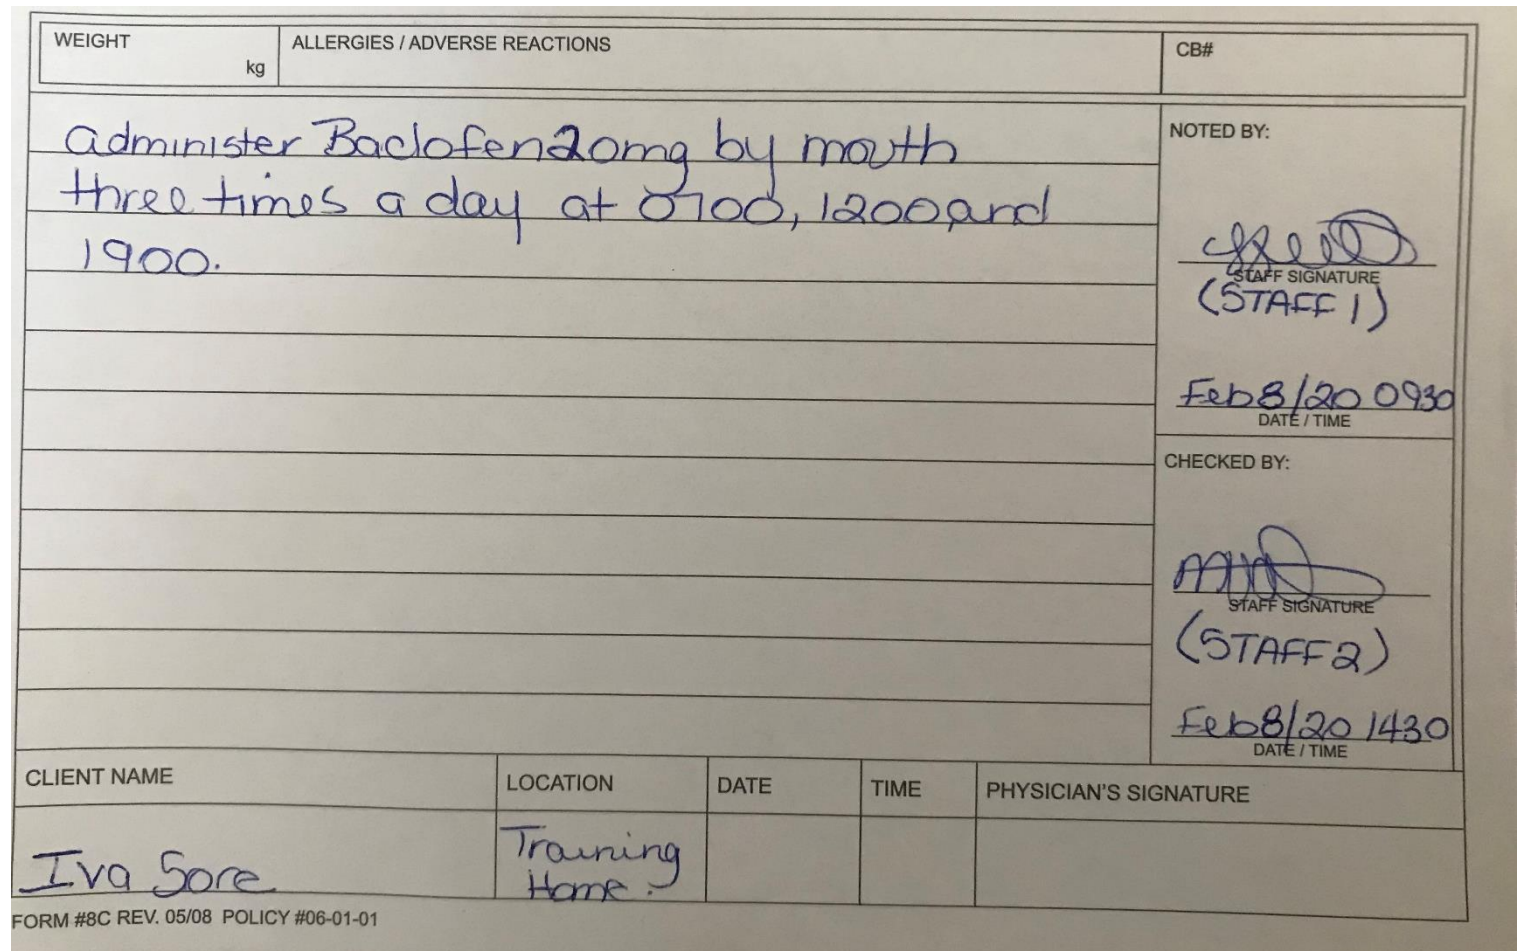 WEIGHT
kg
ALLERGIES / ADVERSE REACTIONS
CB#
administer Baclofen 20mg by mouth
three times a day at 0700, 1200, and
1900.
NOTED BY:
STAFF SIGNATURE
(STAFF 1)
Feb 8/20 0930
DATE / TIME
CHECKED BY:
STAFF SIGNATURE
(STAFF 2)
Feb 8/20 1430
DATE / TIME
CLIENT NAME
LOCATION
DATE
TIME
PHYSICIAN'S SIGNATURE
Iva Sore
Training
Home.
FORM #8C REV. 05/08 POLICY #06-01-01